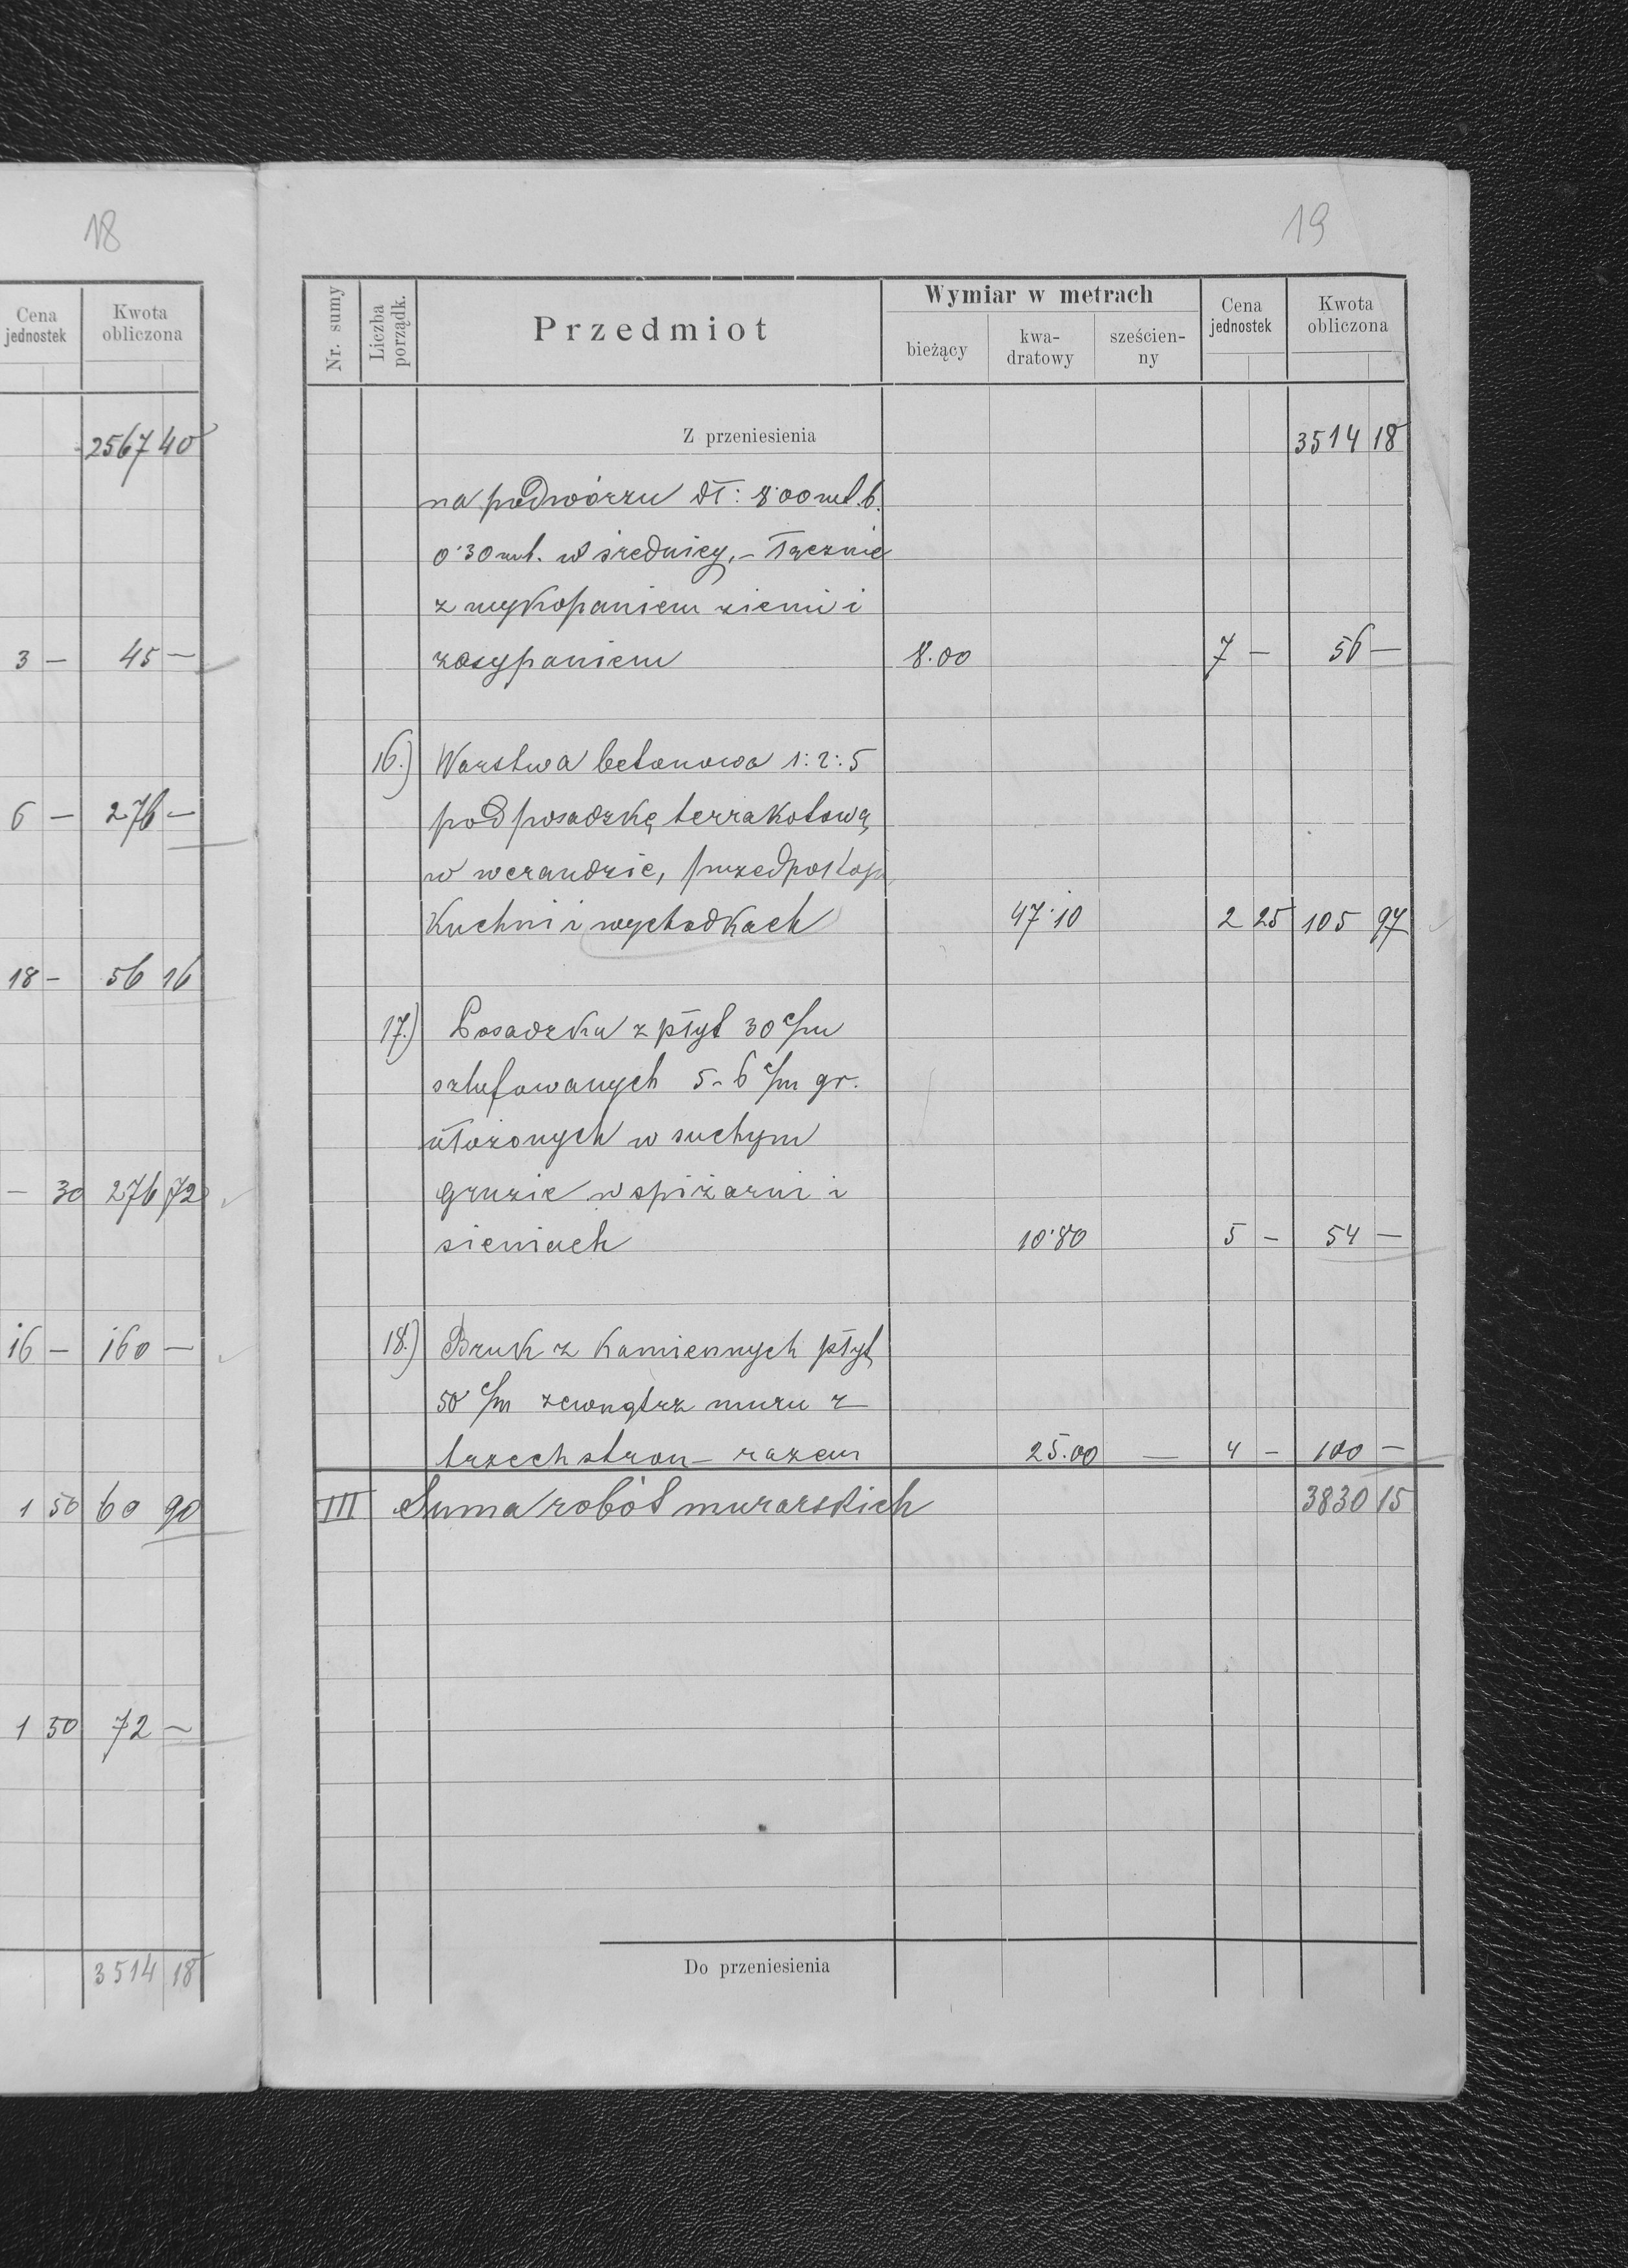 18
Cena jednostek
Kwota obliczona
2567 40
3 — 45 —
6 — 276 —
18 — 56 16
— 30 276 72
16 — 160 —
1 50 60 90
1 50 72 —
3514 18
19
Nr. sumy
Liczba porządk.
Przedmiot
Wymiar w metrach
bieżący
kwa-
dratowy
sześcien-
ny
Cena
jednostek
Kwota
obliczona
Z przeniesienia 3514 18
na podwórzu dł: 8·00 mt. b.
0·30 mt. w średnicy, – łącznie
z wykopaniem ziemi i
zasypaniem 8.00 7 — 56 —
16.) Warstwa betonowa 1:2:5
pod posadzkę terrakotową
w werandzie, przedpokoju
Kuchni i wychodkach 47·10 2 25 105 97
17.) Posadzka z płyt 30 c/m
szlufowanych 5-6 c/m gr.
ułożonych w suchym
gruzie w spiżarni i
sieniach 10·80 5 — 54 —
18.) Bruk z Kamiennych płyt
50 c/m zewnątrz muru z
trzech stron – razem 25.00 — 4 — 100 —
III Suma robót murarskich 3830 15
Do przeniesienia